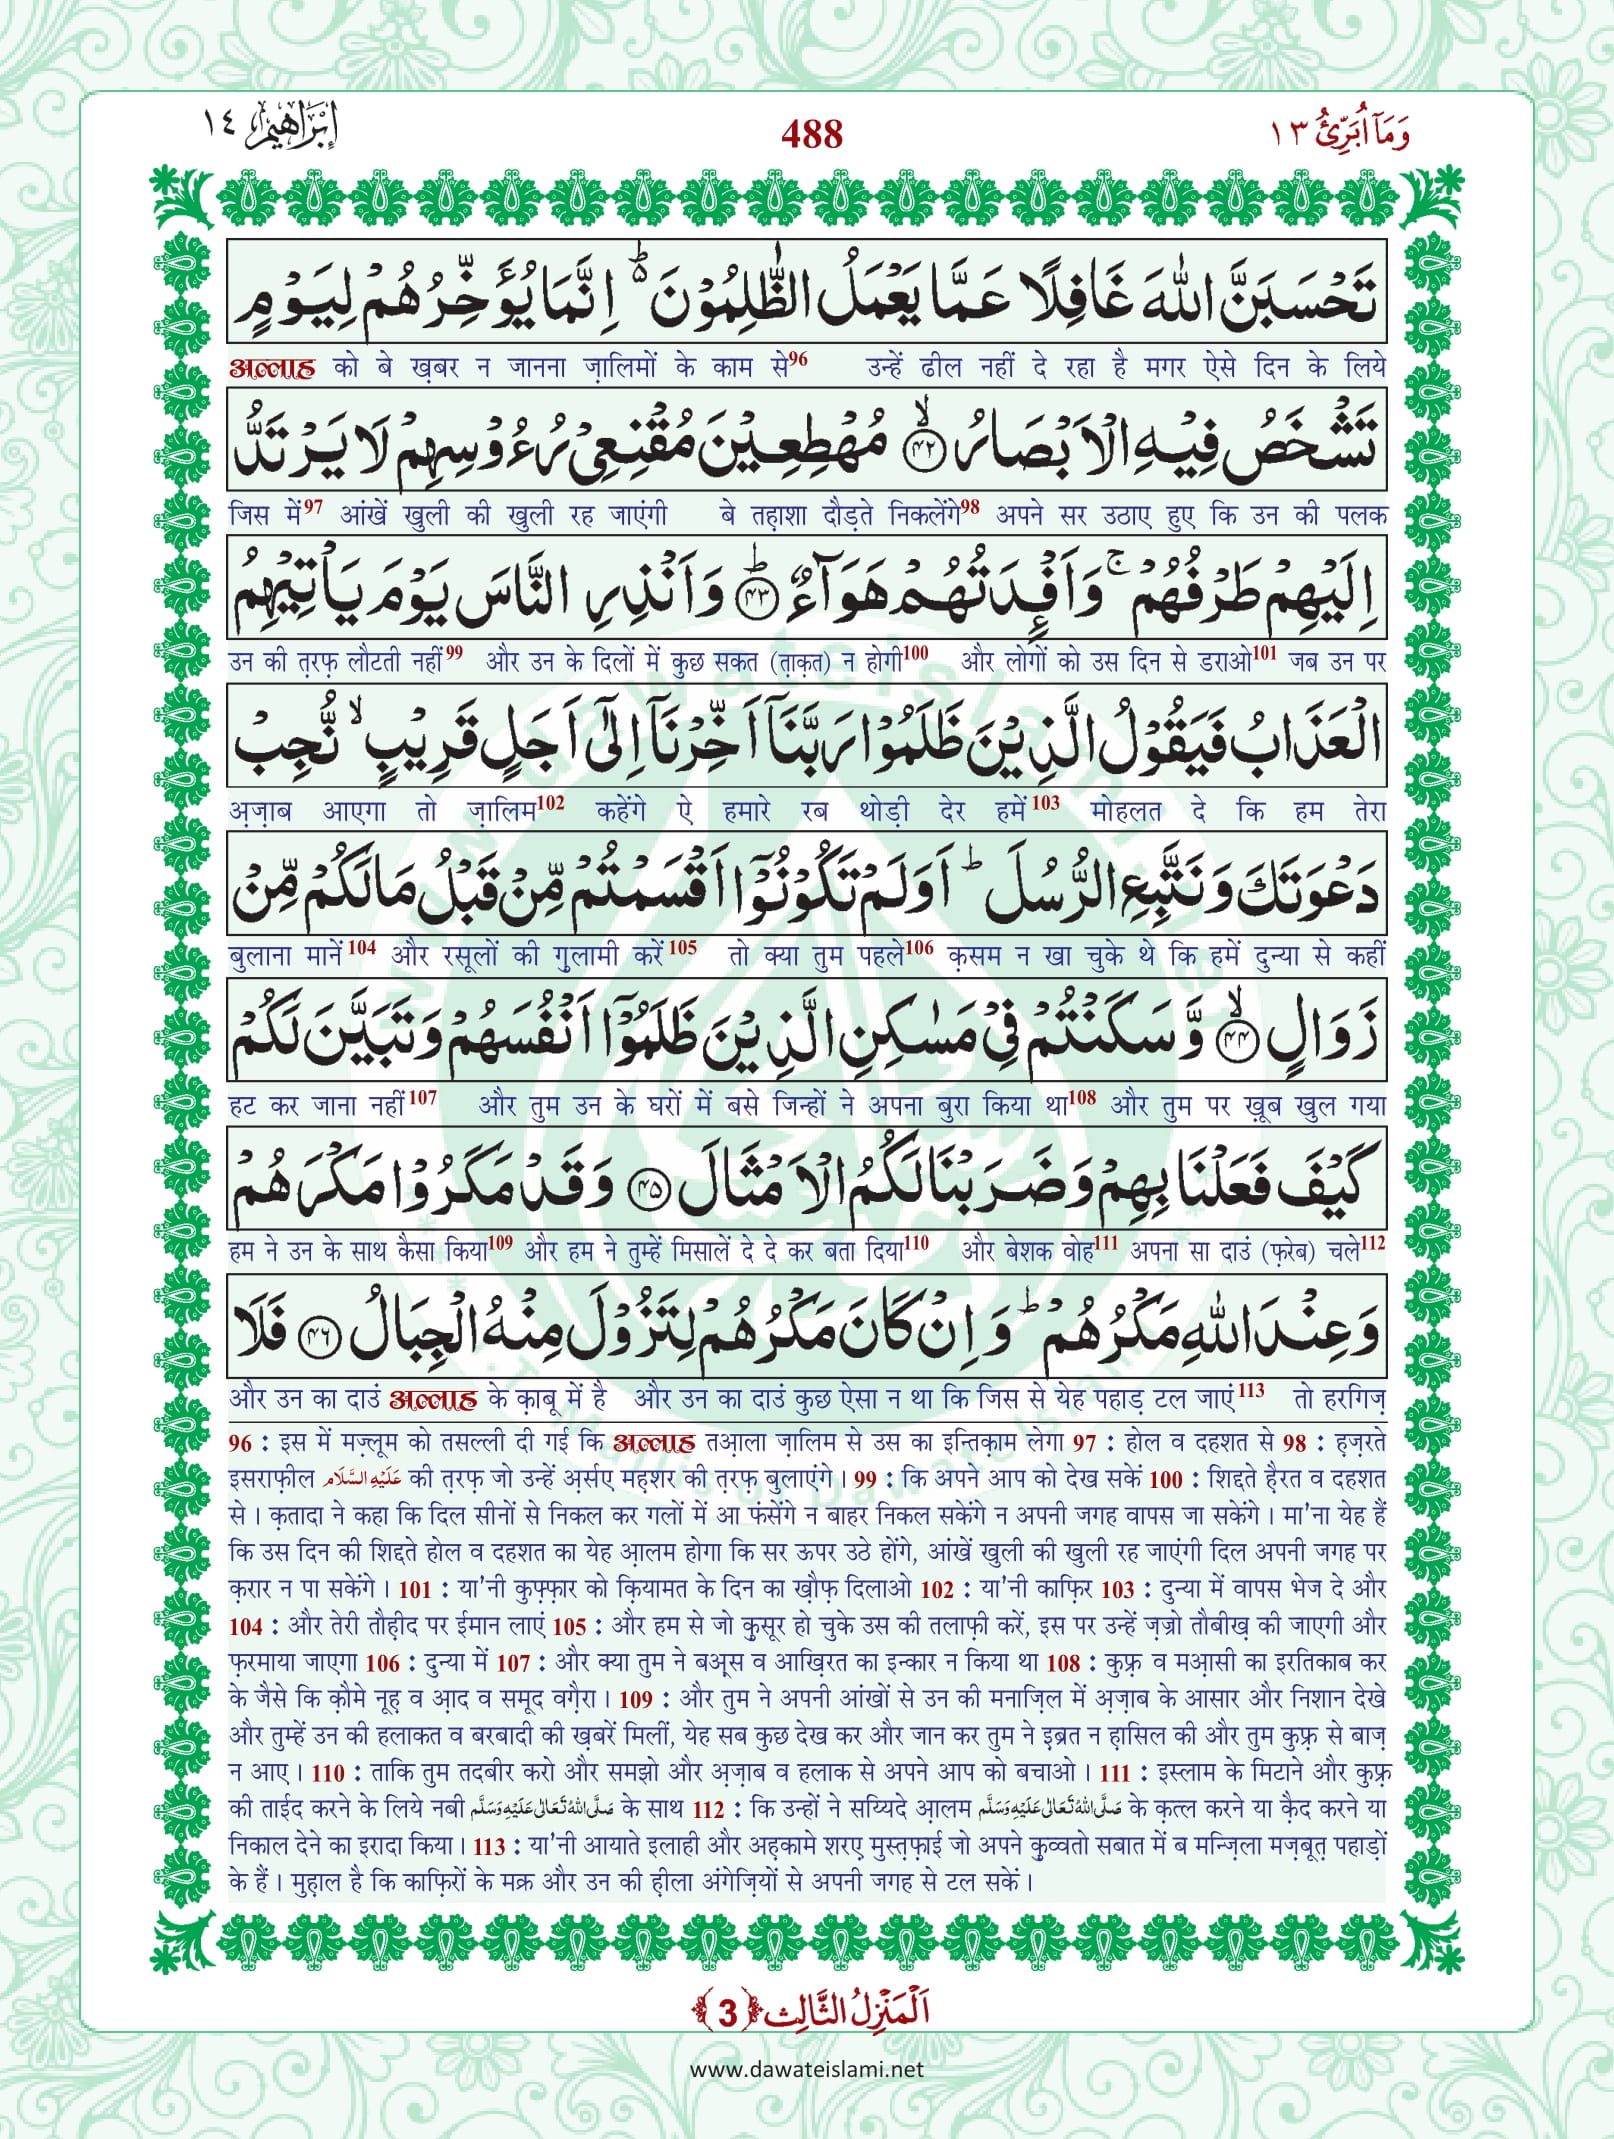 وَمَآ اُبَرِّئُ ١٣
488
اِبْرٰهِيْم ١٤
تَحْسَبَنَّ اللّٰهَ غَافِلًا عَمَّا يَعْمَلُ الظّٰلِمُوْنَ ۬ؕ اِنَّمَا يُؤَخِّرُهُمْ لِيَوْمٍ
अल्लाह को बे ख़बर न जानना ज़ालिमों के काम से96 उन्हें ढील नहीं दे रहा है मगर ऐसे दिन के लिये
تَشْخَصُ فِيْهِ الْاَبْصَارُ ۙ﴿۴۲﴾ مُهْطِعِيْنَ مُقْنِعِيْ رُءُوْسِهِمْ لَا يَرْتَدُّ
जिस में97 आंखें खुली की खुली रह जाएंगी बे तह़ाशा दौड़ते निकलेंगे98 अपने सर उठाए हुए कि उन की पलक
اِلَيْهِمْ طَرْفُهُمْ ۚ وَاَفْـِٕدَتُهُمْ هَوَآءٌ ؕ﴿۴۳﴾ وَاَنْذِرِ النَّاسَ يَوْمَ يَاْتِيْهِمُ
उन की त़रफ़ लौटती नहीं99 और उन के दिलों में कुछ सकत (त़ाक़त) न होगी100 और लोगों को उस दिन से डराओ101 जब उन पर
الْعَذَابُ فَيَقُوْلُ الَّذِيْنَ ظَلَمُوْا رَبَّنَآ اَخِّرْنَآ اِلٰٓى اَجَلٍ قَرِيْبٍ ۙ نُّجِبْ
अ़ज़ाब आएगा तो ज़ालिम102 कहेंगे ऐ हमारे रब थोड़ी देर हमें103 मोहलत दे कि हम तेरा
دَعْوَتَكَ وَنَتَّبِعِ الرُّسُلَ ؕ اَوَلَمْ تَكُوْنُوْٓا اَقْسَمْتُمْ مِّنْ قَبْلُ مَا لَكُمْ مِّنْ
बुलाना मानें104 और रसूलों की ग़ुलामी करें105 तो क्या तुम पहले106 क़सम न खा चुके थे कि हमें दुन्या से कहीं
زَوَالٍ ۙ﴿۴۴﴾ وَّسَكَنْتُمْ فِيْ مَسٰكِنِ الَّذِيْنَ ظَلَمُوْٓا اَنْفُسَهُمْ وَتَبَيَّنَ لَكُمْ
हट कर जाना नहीं107 और तुम उन के घरों में बसे जिन्हों ने अपना बुरा किया था108 और तुम पर ख़ूब खुल गया
كَيْفَ فَعَلْنَا بِهِمْ وَضَرَبْنَا لَكُمُ الْاَمْثَالَ ﴿۴۵﴾ وَقَدْ مَكَرُوْا مَكْرَهُمْ
हम ने उन के साथ कैसा किया109 और हम ने तुम्हें मिसालें दे दे कर बता दिया110 और बेशक वोह111 अपना सा दाउं (फ़रेब) चले112
وَعِنْدَ اللّٰهِ مَكْرُهُمْ ؕ وَاِنْ كَانَ مَكْرُهُمْ لِتَزُوْلَ مِنْهُ الْجِبَالُ ﴿۴۶﴾ فَلَا
और उन का दाउं अल्लाह के क़ाबू में है और उन का दाउं कुछ ऐसा न था कि जिस से येह पहाड़ टल जाएं113 तो हरगिज़
96 : इस में मज़्लूम को तसल्ली दी गई कि अल्लाह तआ़ला ज़ालिम से उस का इन्तिक़ाम लेगा 97 : होल व दहशत से 98 : ह़ज़रते
इसराफ़ील عَلَيْهِ السَّلَام की त़रफ़ जो उन्हें अ़र्सए मह़शर की त़रफ़ बुलाएंगे। 99 : कि अपने आप को देख सकें 100 : शिद्दते ह़ैरत व दहशत
से। क़तादा ने कहा कि दिल सीनों से निकल कर गलों में आ फंसेंगे न बाहर निकल सकेंगे न अपनी जगह वापस जा सकेंगे। मा'ना येह हैं
कि उस दिन की शिद्दते होल व दहशत का येह आ़लम होगा कि सर ऊपर उठे होंगे, आंखें खुली की खुली रह जाएंगी दिल अपनी जगह पर
क़रार न पा सकेंगे। 101 : या'नी कुफ़्फ़ार को क़ियामत के दिन का ख़ौफ़ दिलाओ 102 : या'नी काफ़िर 103 : दुन्या में वापस भेज दे और
104 : और तेरी तौह़ीद पर ईमान लाएं 105 : और हम से जो क़ुसूर हो चुके उस की तलाफ़ी करें, इस पर उन्हें ज़ज्रो तौबीख़ की जाएगी और
फ़रमाया जाएगा 106 : दुन्या में 107 : और क्या तुम ने बअ्स व आख़िरत का इन्कार न किया था 108 : कुफ़्र व मआ़सी का इरतिकाब कर
के जैसे कि क़ौमे नूह़ व आ़द व समूद वग़ैरा। 109 : और तुम ने अपनी आंखों से उन की मनाज़िल में अ़ज़ाब के आसार और निशान देखे
और तुम्हें उन की हलाकत व बरबादी की ख़बरें मिलीं, येह सब कुछ देख कर और जान कर तुम ने इ़ब्रत न ह़ासिल की और तुम कुफ़्र से बाज़
न आए। 110 : ताकि तुम तदबीर करो और समझो और अ़ज़ाब व हलाक से अपने आप को बचाओ। 111 : इस्लाम के मिटाने और कुफ़्र
की ताईद करने के लिये नबी صَلَّى اللّٰهُ تَعَالٰى عَلَيْهِ وَسَلَّم के साथ 112 : कि उन्हों ने सय्यिदे आ़लम صَلَّى اللّٰهُ تَعَالٰى عَلَيْهِ وَسَلَّم के क़त्ल करने या क़ैद करने या
निकाल देने का इरादा किया। 113 : या'नी आयाते इलाही और अह़कामे शरए मुस्त़फ़ाई जो अपने क़ुव्वतो सबात में ब मन्ज़िला मज़बूत़ पहाड़ों
के हैं। मुह़ाल है कि काफ़िरों के मक्र और उन की ह़ीला अंगेज़ियों से अपनी जगह से टल सकें।
اَلْمَنْزِلُ الثَّالِث ﴿3﴾
www.dawateislami.net